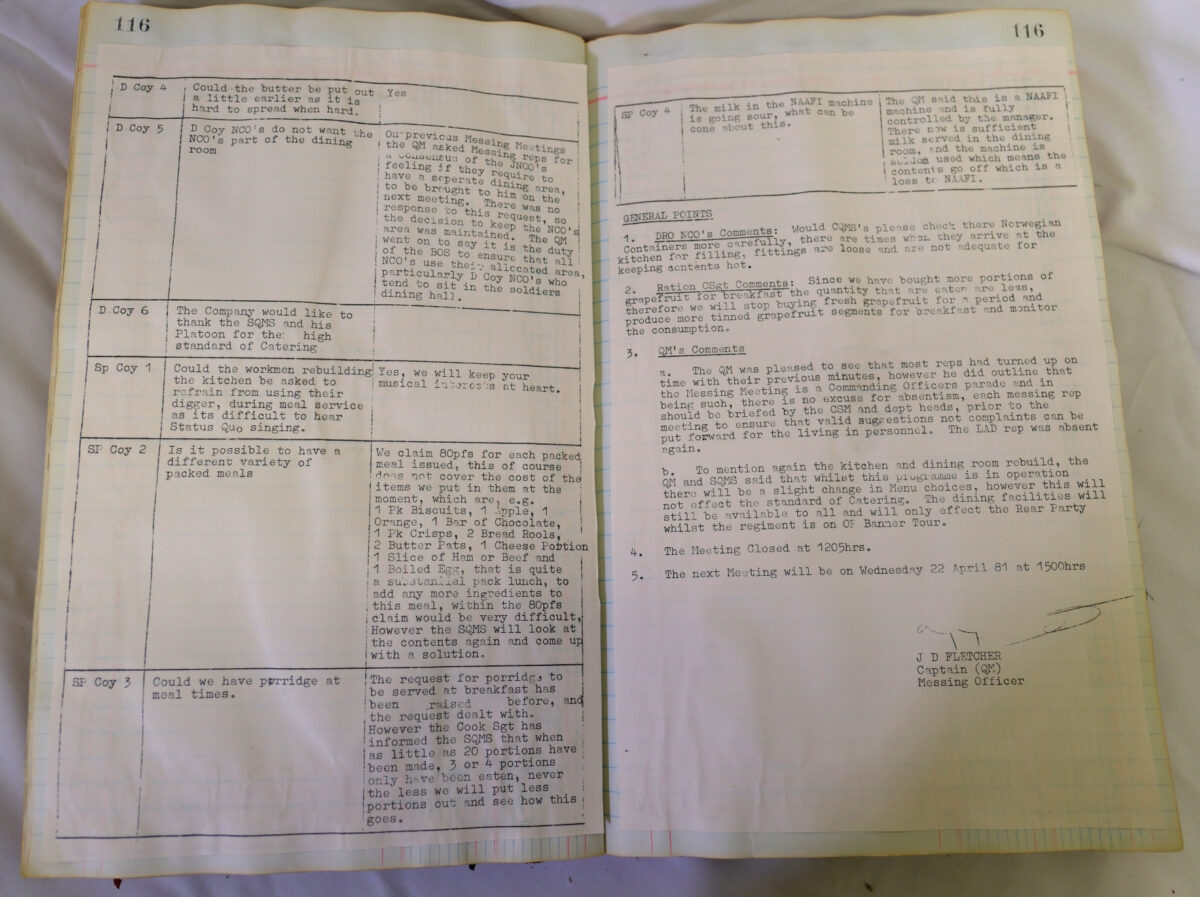 116
D Coy 4
Could the butter be put out
a little earlier as it is
hard to spread when hard.
Yes
D Coy 5
D Coy NCO's do not want the
NCO's part of the dining
room
On previous Messing Meetings
the QM asked Messing reps for
a consensus of the JNCO's
feeling if they require to
have a seperate dining area,
to be brought to him on the
next meeting. There was no
response to this request, so
the decision to keep the NCO's
area was maintained. The QM
went on to say it is the duty
of the BOS to ensure that all
NCO's use their allocated area,
particularly D Coy NCO's who
tend to sit in the soldiers
dining hall.
D Coy 6
The Company would like to
thank the SQMS and his
Platoon for the high
standard of Catering
Sp Coy 1
Could the workmen rebuilding
the kitchen be asked to
refrain from using their
digger, during meal service
as its difficult to hear
Status Quo singing.
Yes, we will keep your
musical interests at heart.
SP Coy 2
Is it possible to have a
different variety of
packed meals
We claim 80pfs for each packed
meal issued, this of course
does not cover the cost of the
items we put in them at the
moment, which are, e.g.
1 Pk Biscuits, 1 Apple, 1
Orange, 1 Bar of Chocolate,
1 Pk Crisps, 2 Bread Rools,
2 Butter Pats, 1 Cheese Portion
1 Slice of Ham or Beef and
1 Boiled Egg, that is quite
a substantial pack lunch, to
add any more ingredients to
this meal, within the 80pfs
claim would be very difficult,
However the SQMS will look at
the contents again and come up
with a solution.
SP Coy 3
Could we have porridge at
meal times.
The request for porridge to
be served at breakfast has
been raised before, and
the request dealt with.
However the Cook Sgt has
informed the SQMS that when
as little as 20 portions have
been made, 3 or 4 portions
only have been eaten, never
the less we will put less
portions out and see how this
goes.
116
SP Coy 4
The milk in the NAAFI machine
is going sour, what can be
cone about this.
The QM said this is a NAAFI
machine and is fully
controlled by the manager.
There now is sufficient
milk served in the dining
room, and the machine is
seldom used which means the
contents go off which is a
loss to NAAFI.
GENERAL POINTS
1. DRO NCO's Comments: Would CQMS's please check there Norwegian
Containers more carefully, there are times when they arrive at the
kitchen for filling, fittings are loose and are not adequate for
keeping contents hot.
2. Ration CSgt Comments: Since we have bought more portions of
grapefruit for breakfast the quantity that are eaten are less,
therefore we will stop buying fresh grapefruit for a period and
produce more tinned grapefruit segments for breakfast and monitor
the consumption.
3. QM's Comments
a. The QM was pleased to see that most reps had turned up on
time with their previous minutes, however he did outline that
the Messing Meeting is a Commanding Officers parade and in
being such, there is no excuse for absentism, each messing rep
should be briefed by the CSM and dept heads, prior to the
meeting to ensure that valid suggestions not complaints can be
put forward for the living in personnel. The LAD rep was absent
again.
b. To mention again the kitchen and dining room rebuild, the
QM and SQMS said that whilst this programme is in operation
there will be a slight change in Menu choices, however this will
not effect the standard of Catering. The dining facilities will
still be available to all and will only effect the Rear Party
whilst the regiment is on OP Banner Tour.
4. The Meeting Closed at 1205hrs.
5. The next Meeting will be on Wednesday 22 April 81 at 1500hrs
J D FLETCHER
Captain (QM)
Messing Officer